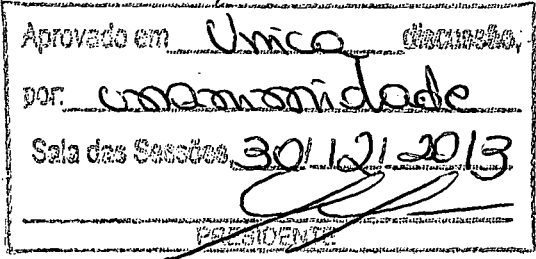 Aprovado em Unica discussão,
por unanimidade
Sala das Sessões 30/12/2013
PRESIDENTE